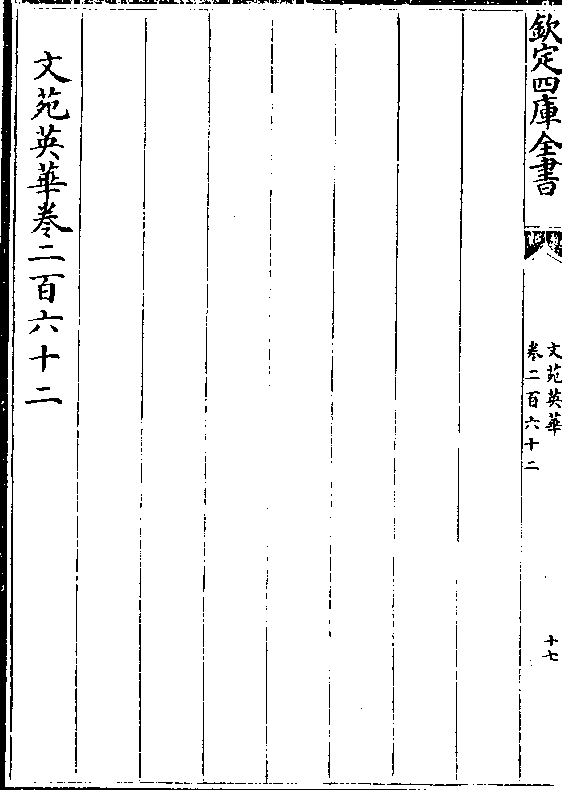 欽定四庫全書
文苑英華
卷二百六十二
十七
文苑英華卷二百六十二